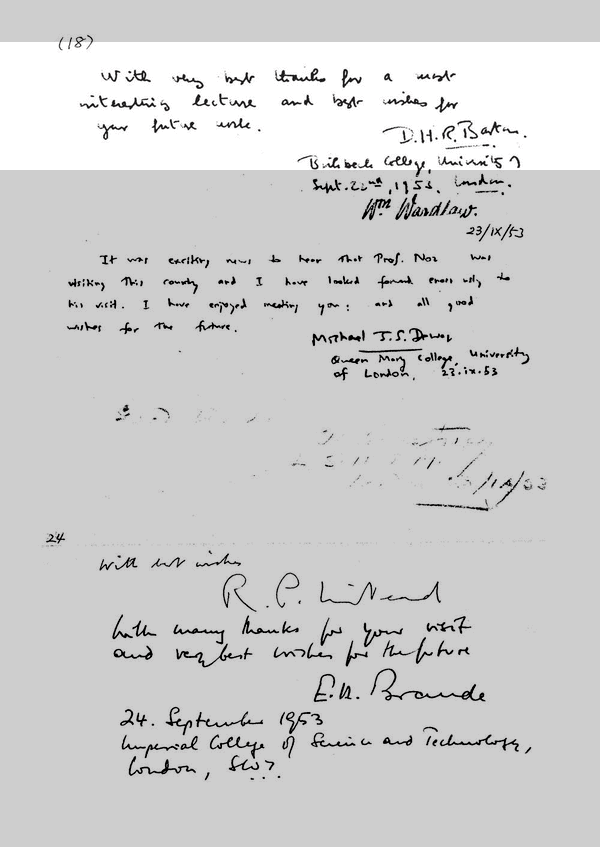 (18)
With very best thanks for a most
interesting lecture and best wishes for
your future work.
D.H.R. Barton.
Birkbeck College, University of
Sept. 22nd, 1953. London.
Wm Wardlaw.
23/IX/53
It was exciting news to hear that Prof. Noz was
visiting this country and I have looked forward enormously to
his visit. I have enjoyed meeting you; and all good
wishes for the future.
Michael J.S. Dewar
Queen Mary College, University
of London, 23.ix.53
/53
24
with best wishes
R. P. Linstead
with many thanks for your visit
and very best wishes for the future
E.A. Braude
24. September 1953
Imperial College of Science and Technology,
London, SW7.